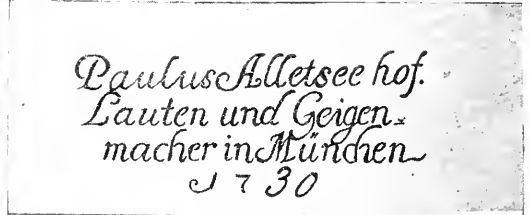 Paulus Alletsee hof.
Lauten und Geigen-
macher in München
1730